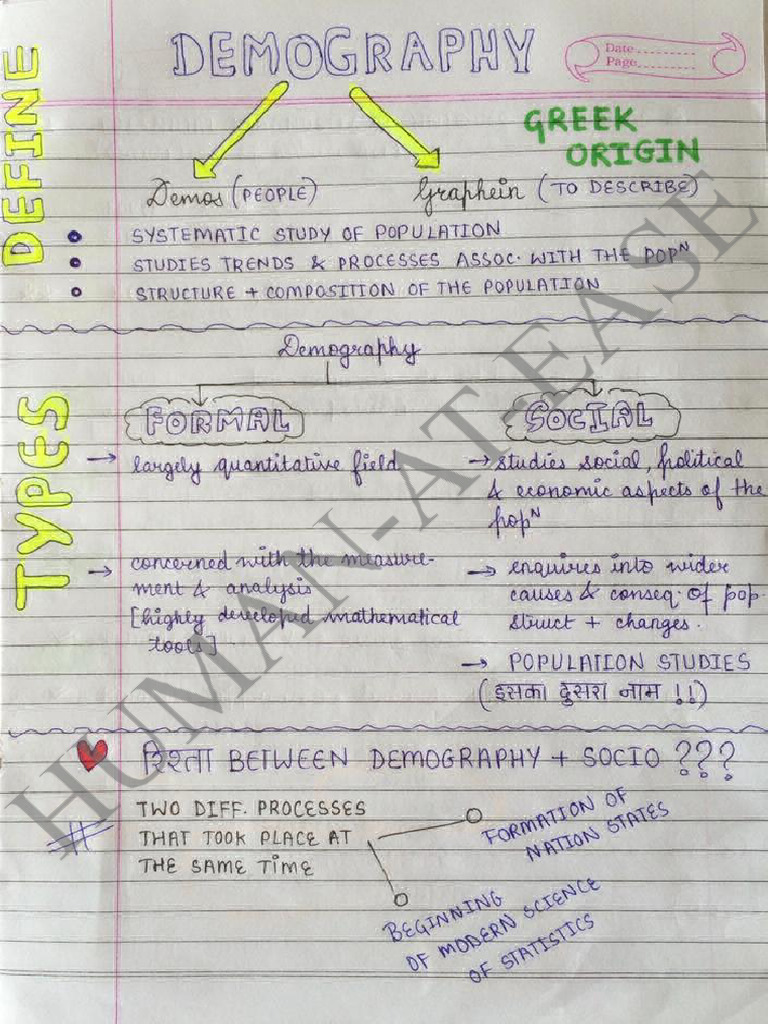 DEMOGRAPHY
Date..........
Page..........
DEFINE
GREEK
ORIGIN
Demos (PEOPLE)
Graphein (TO DESCRIBE)
SYSTEMATIC STUDY OF POPULATION
STUDIES TRENDS & PROCESSES ASSOC. WITH THE POPᴺ
STRUCTURE + COMPOSITION OF THE POPULATION
TYPES
Demography
FORMAL
→ largely quantitative field
→ concerned with the measure-
ment & analysis
[highly developed mathematical
tools]
SOCIAL
→ studies social, political
& economic aspects of the
popᴺ
→ enquires into wider
causes & conseq. of pop.
struct + changes.
→ POPULATION STUDIES
(इसका दुसरा नाम !!)
रिश्ता BETWEEN DEMOGRAPHY + SOCIO ???
#
TWO DIFF. PROCESSES
THAT TOOK PLACE AT
THE SAME TIME
FORMATION OF
NATION STATES
BEGINNING
OF MODERN SCIENCE
OF STATISTICS
HUMAN-AT-EASE